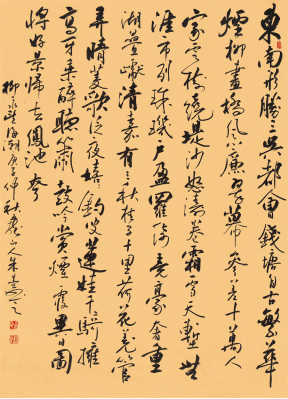 東南形勝三吳都會錢塘自古繁華
煙柳畫橋風簾翠幕參差十萬人
家雲樹繞堤沙怒濤卷霜雪天塹無
涯市列珠璣戶盈羅綺競豪奢重
湖疊巘清嘉有三秋桂子十里荷花羌管
弄晴菱歌泛夜嬉嬉釣叟蓮娃千騎擁
高牙乘醉聽簫鼓吟賞煙霞異日圖
將好景歸去鳳池夸
柳永望海潮庚子仲秋人朱